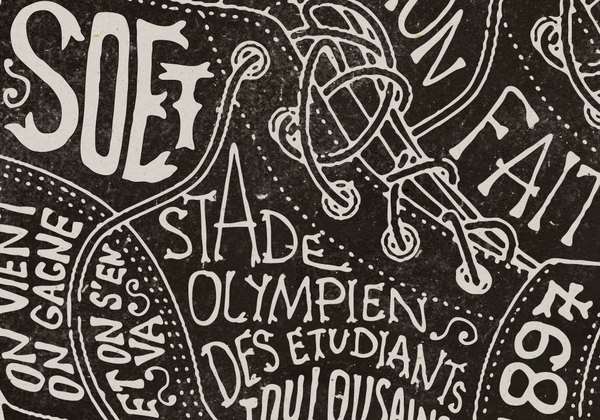 SOET
FAIT
STADE
OLYMPIEN
DES ÉTUDIANTS
TOULOUSAINS
ON VIENT
ON GAGNE
ET ON S'EN
VA